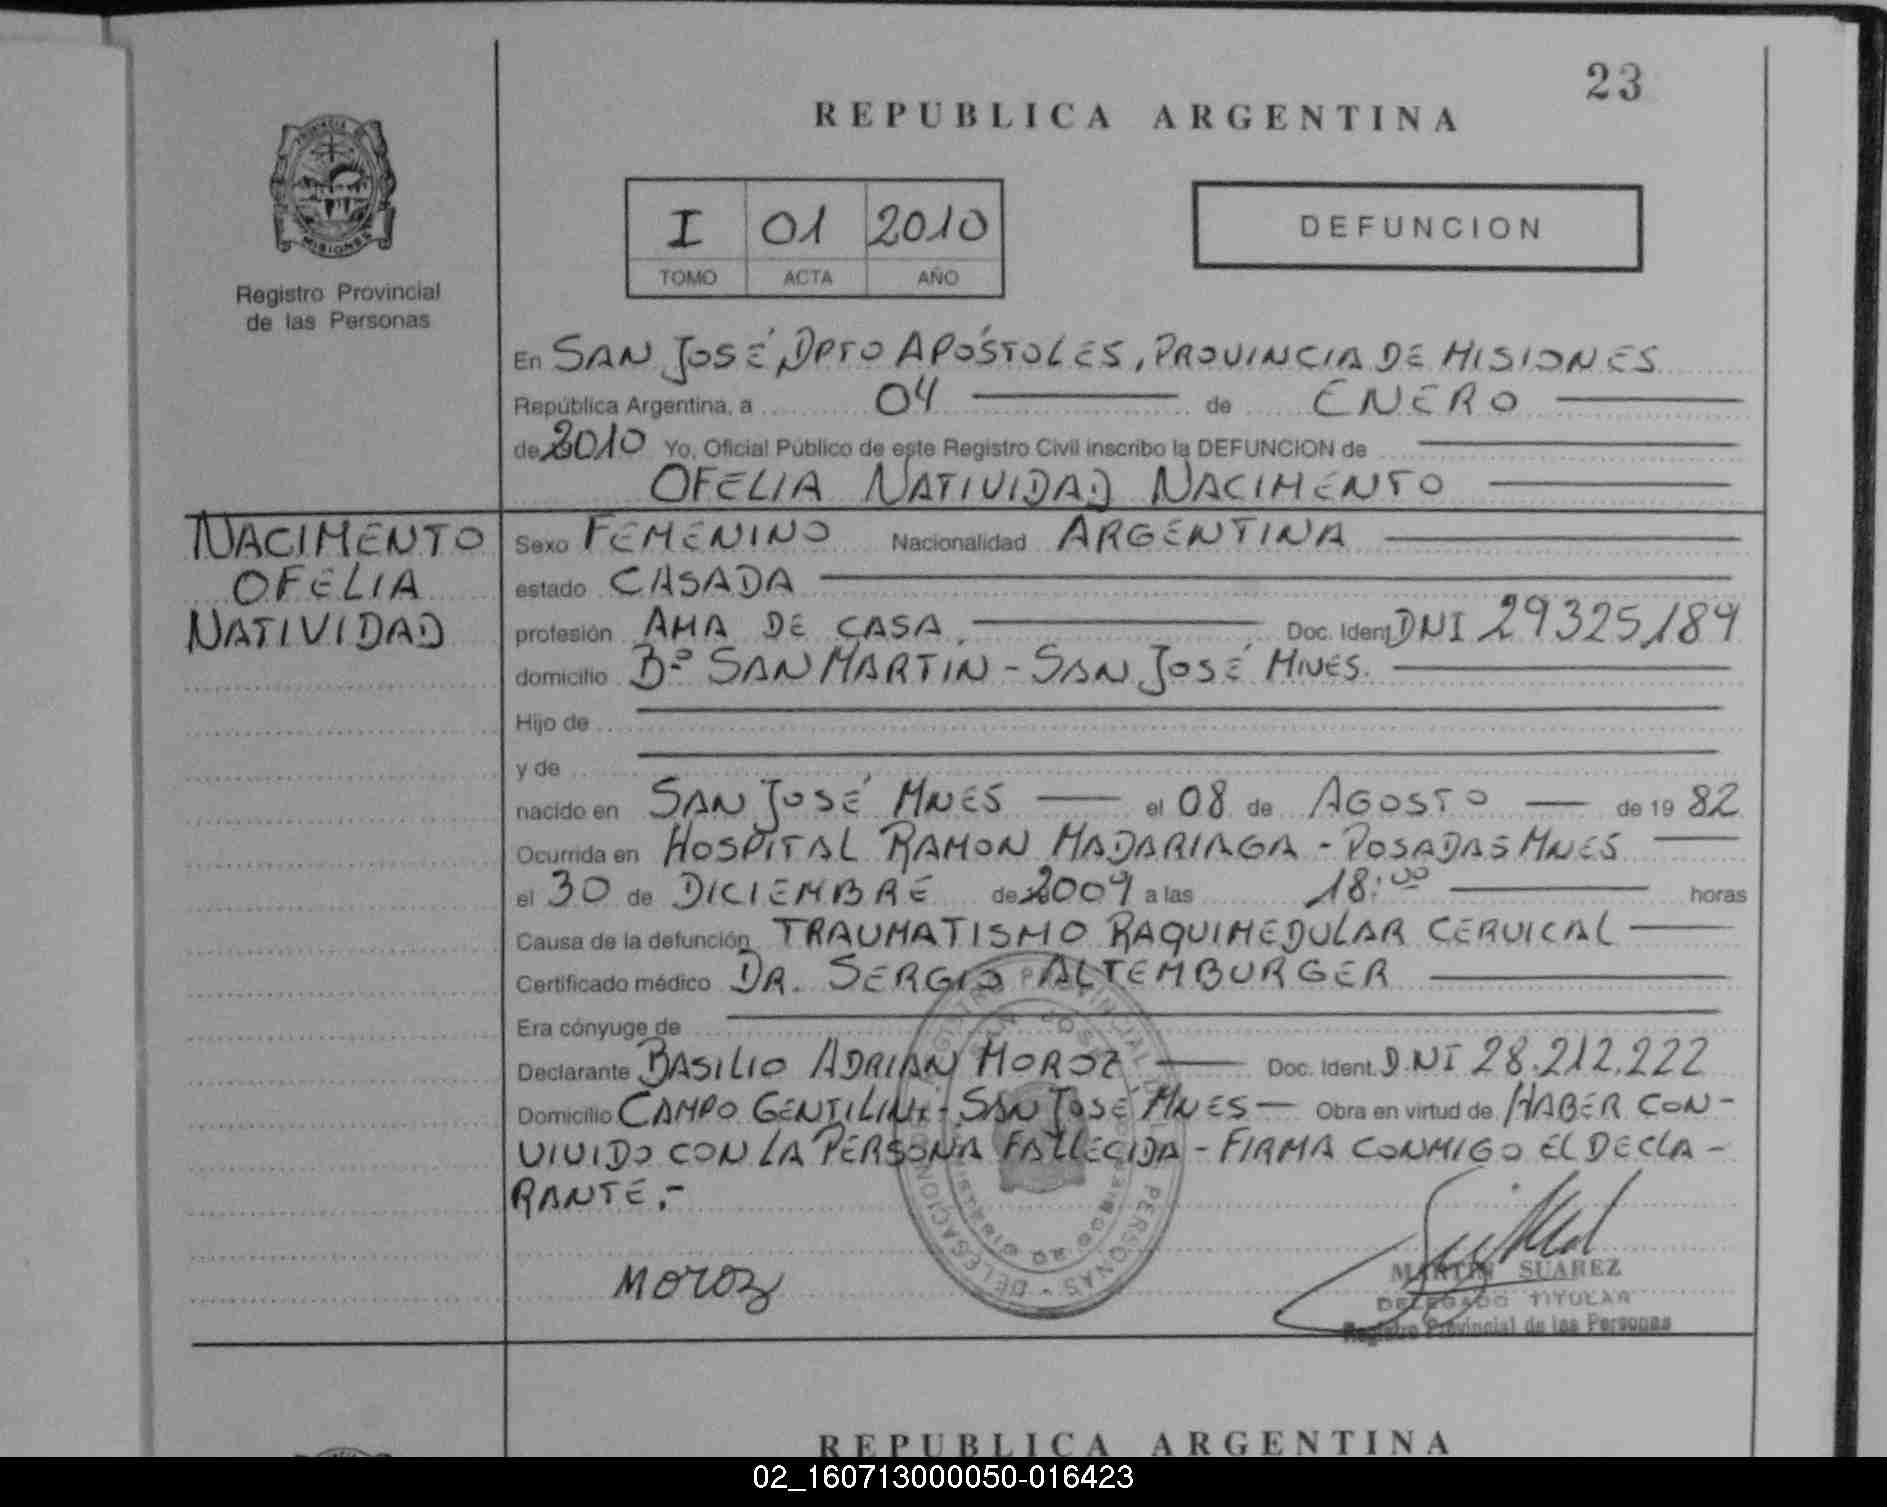 23
REPUBLICA ARGENTINA
PROVINCIA DE
MISIONES
Registro Provincial
de las Personas
I 01 2010
TOMO ACTA AÑO
DEFUNCION
En SAN JOSÉ, DPTO APÓSTOLES, PROVINCIA DE MISIONES
República Argentina, a 04 de ENERO
de 2010 Yo, Oficial Público de este Registro Civil inscribo la DEFUNCION de
OFELIA NATIVIDAD NACIMENTO
NACIMENTO
OFELIA
NATIVIDAD
Sexo FEMENINO Nacionalidad ARGENTINA
estado CASADA
profesión AMA DE CASA. Doc. Ident. DNI 29325189
domicilio Bº SAN MARTÍN - SAN JOSÉ MNES.
Hijo de
y de
nacido en SAN JOSÉ MNES el 08 de AGOSTO de 19 82
Ocurrida en HOSPITAL RAMON MADARIAGA - POSADAS MNES
el 30 de DICIEMBRE de 2009 a las 18:00 horas
Causa de la defunción TRAUMATISMO RAQUIMEDULAR CERVICAL
Certificado médico DR. SERGIO ALTEMBURGER
Era cónyuge de
Declarante BASILIO ADRIAN MOROZ Doc. Ident. D.NI 28.212.222
Domicilio CAMPO GENTILINI - SAN JOSÉ MNES - Obra en virtud de HABER CON-
VIVIDO CON LA PERSONA FALLECIDA - FIRMA CONMIGO EL DECLA-
RANTE.-
MOROZ
MARTIN SUAREZ
DELEGADO TITULAR
Registro Provincial de las Personas
REPUBLICA ARGENTINA
02_160713000050-016423